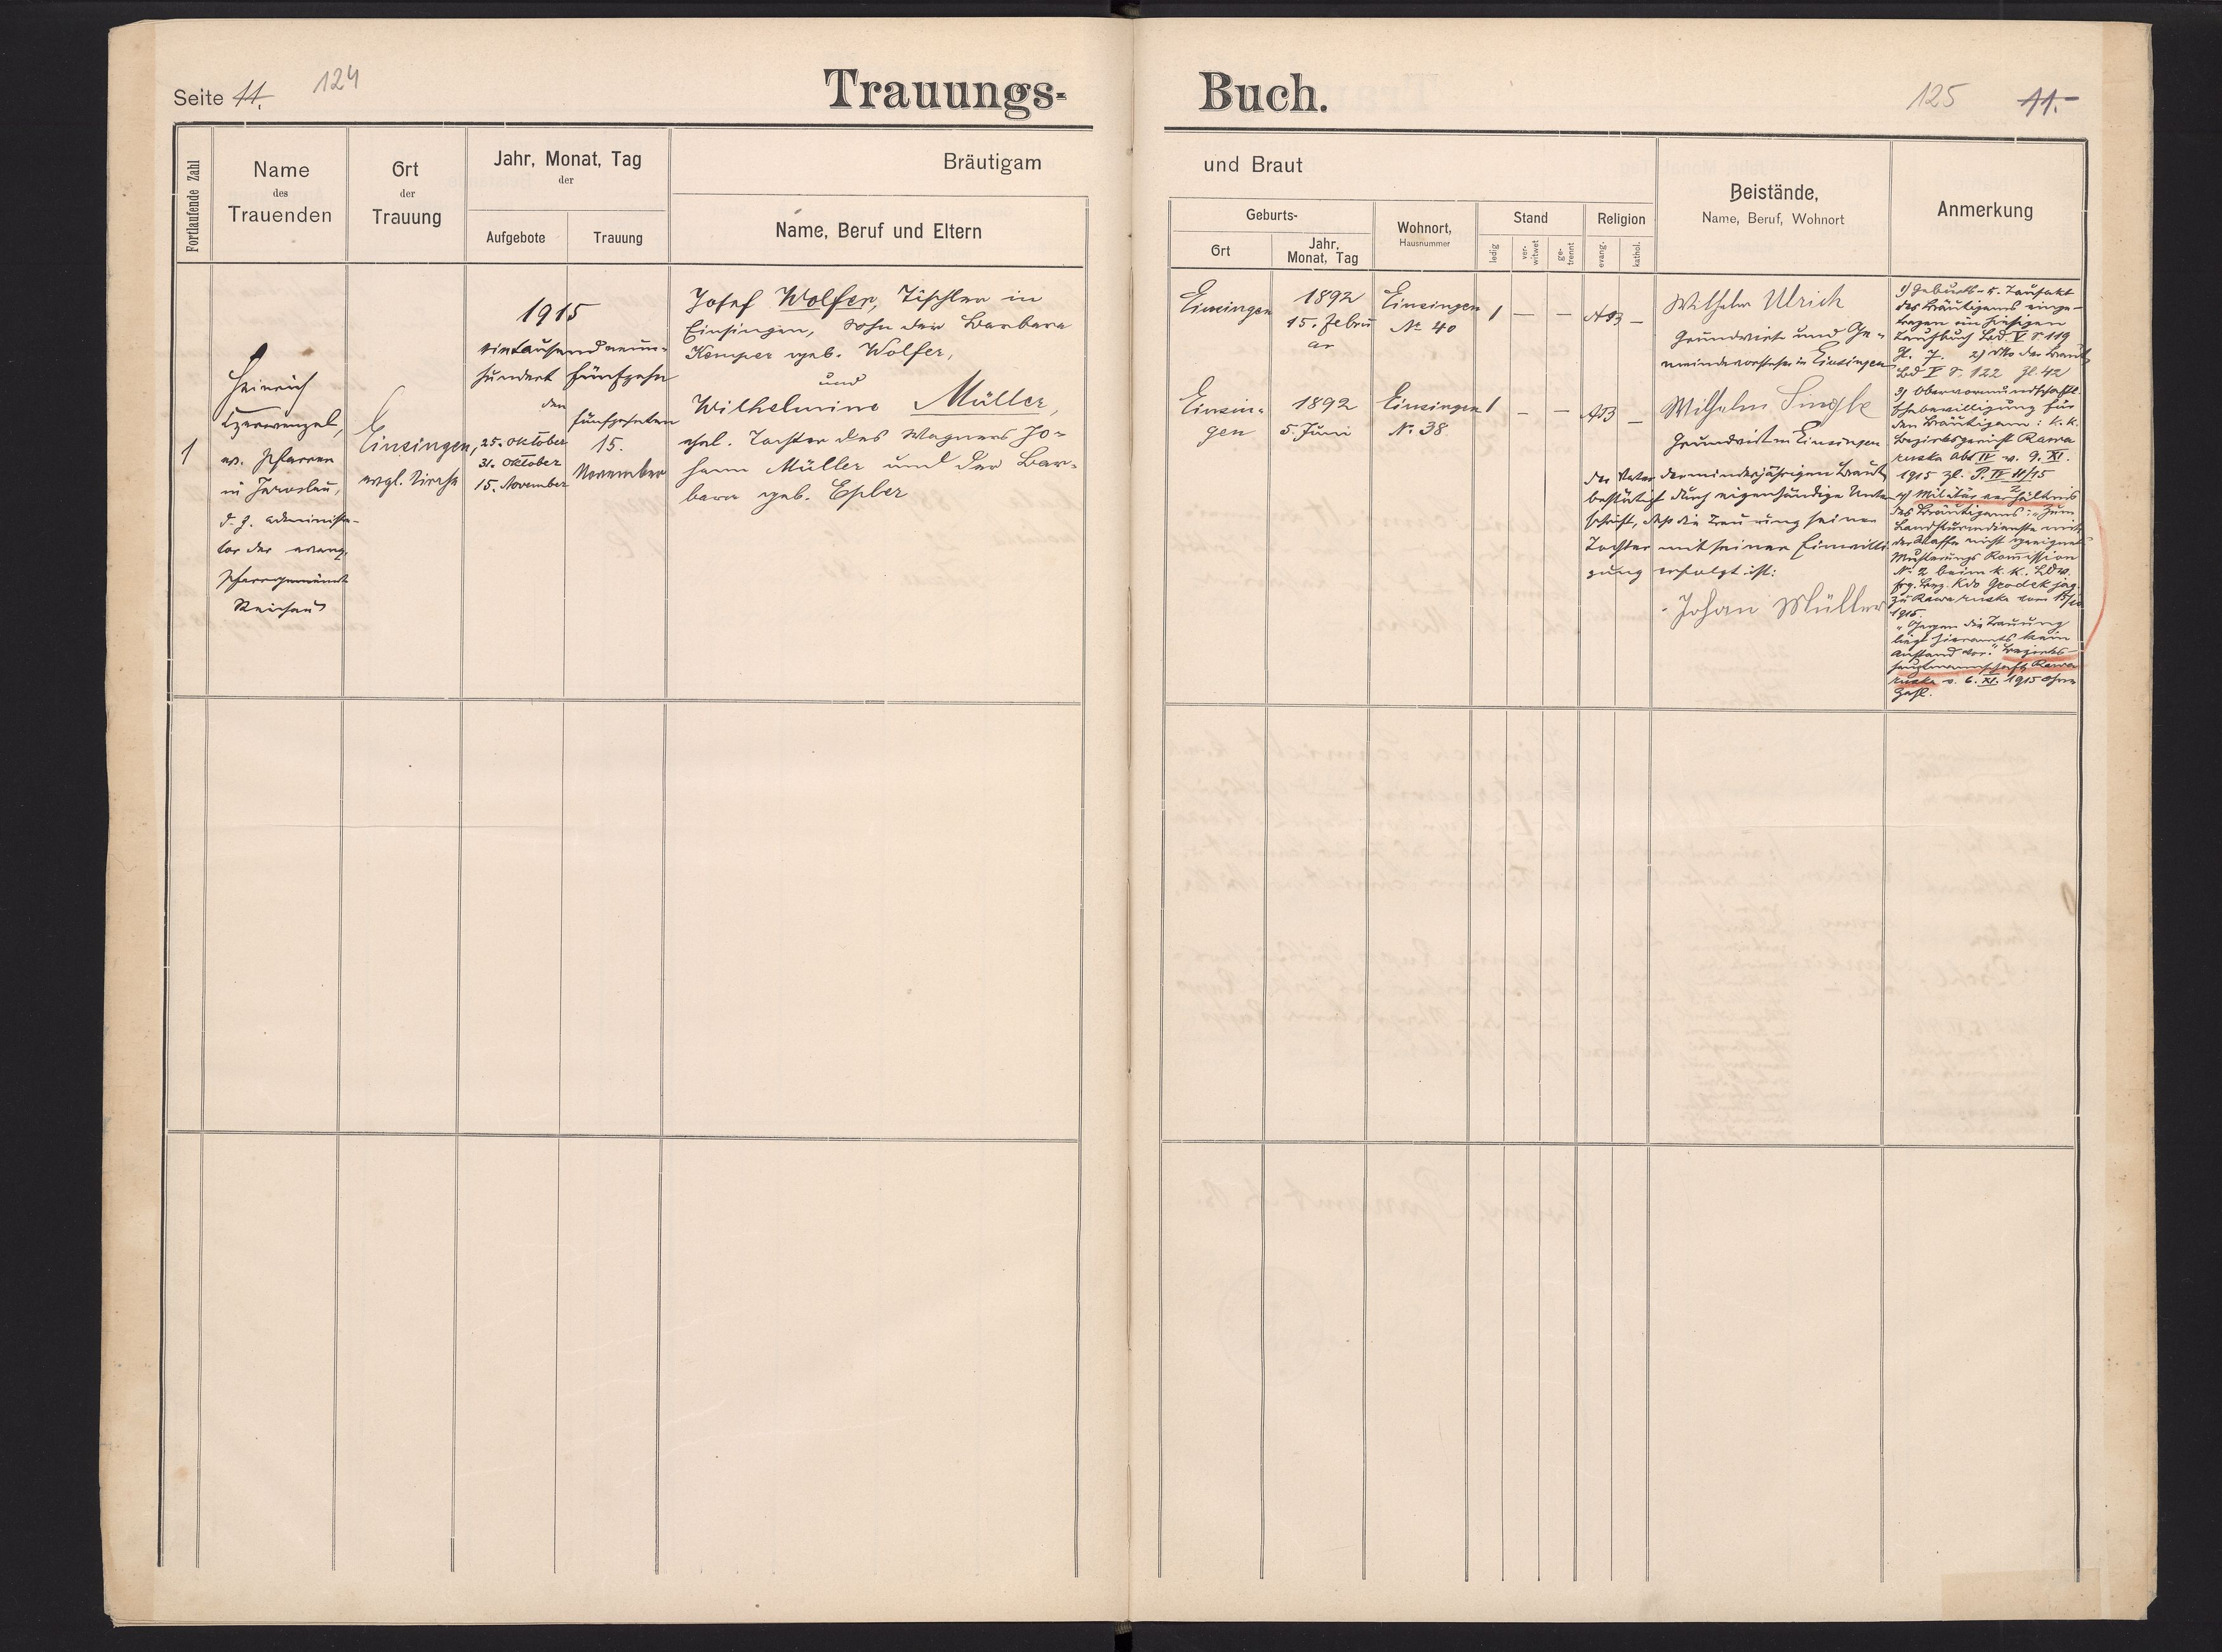 Seite 11. 124
Trauungs-
Fortlaufende Zahl
Name
des
Trauenden
Ort
der
Trauung
Jahr, Monat, Tag
der
Aufgebote
Trauung
Bräutigam
Name, Beruf und Eltern
1
Heinrich
ev. Pfarrer
in Jaroslau,
d. z. Administra-
tor der evang.
Pfarrgemeinde
Reichau
Einsingen,
evgl. Kirche
1915
eintausend neun-
hundert fünfzehn
den
25. Oktober
31. Oktober
15. November
fünfzehnten
15.
November
Josef Wolfer, Tischler in
Einsingen, Sohn der Barbara
Kemper geb. Wolfer,
und
Wilhelmine Müller,
ehel. Tochter des Wagners Jo-
hann Müller und der Bar-
bara geb. Epler
Buch.
125 11.
und Braut
Geburts-
Ort
Jahr,
Monat, Tag
Wohnort,
Hausnummer
Stand
ledig
ver-
witwet
ge-
trennt
Religion
evang.
kathol.
Beistände,
Name, Beruf, Wohnort
Anmerkung
Einsingen
1892
15. Febru
ar
Einsingen
No 40
1 — — AB —
Wilhelm Ulrich
Grundwirt und Ge-
meindevorsteher in Einsingen
Einsin-
gen
1892
5. Juni
Einsingen
No 38
1 — — AB —
Wilhelm
Grundwirt in Einsingen
Der Vater der minderjährigen Braut
bestätigt durch eigenhändige Unter
schrift, daß die Trauung seiner
Tochter mit seiner Einwilli
gung erfolgt ist:
Johan Müller
1) Geburts- u. Taufakt
des Bräutigams einge-
tragen im hiesigen
Taufbuch Bd. V S. 119
Zl. 7. 2) dto der Braut
Bd V S. 122 Zl. 42
3) Obervormundschaftl.
Ehebewilligung für
den Bräutigam: k. k.
Bezirksgericht Rawa
ruska Abt IV v. 9. XI.
1915 Zl. P. IV 11/15
2
4) Militärverhältnis
des Bräutigams: „Zum
Landsturmdienste mit
der Waffe nicht geeignet"
Musterungs Kommission
No 2 beim k. k. Ldst.
Bez. Kdo Grodek jag.
zu Rawa ruska vom
1915.
„Gegen die Trauung
liegt hieramts kein
Anstand vor." Bezirks-
hauptmannschaft Rawa
ruska v. 6. XI. 1915 ohne
Zahl.